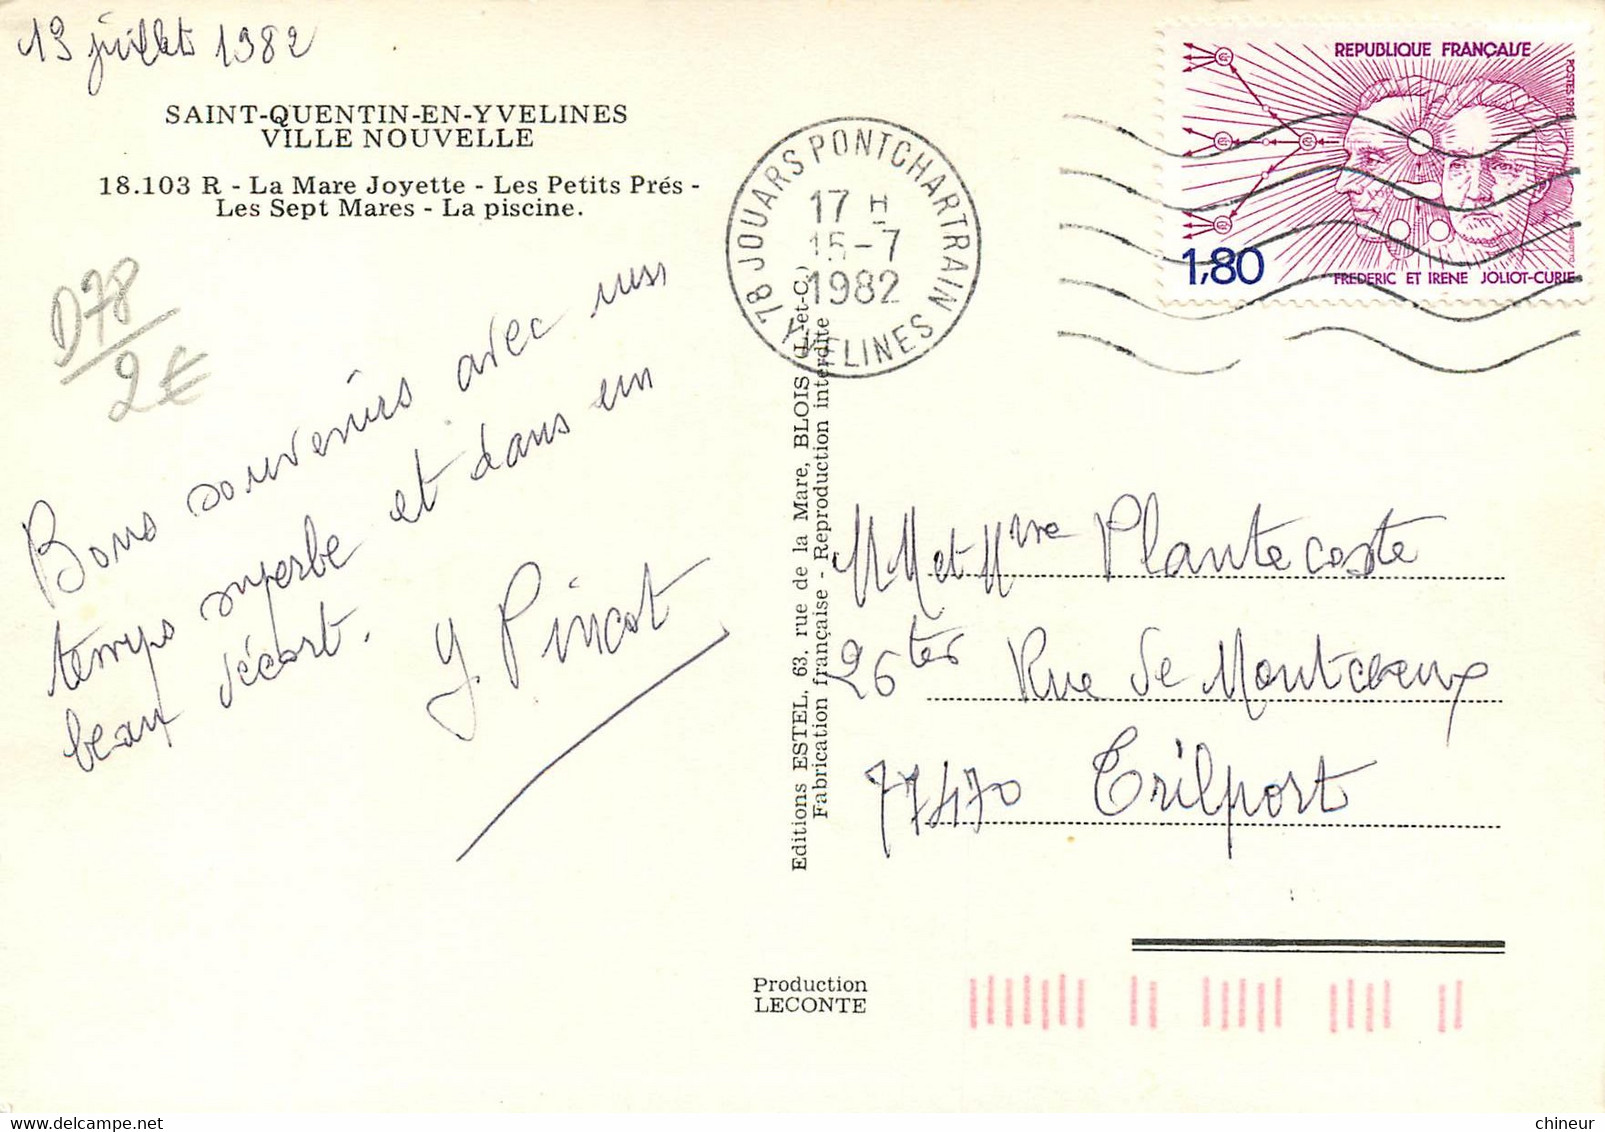 13 juillet 1982
SAINT-QUENTIN-EN-YVELINES
VILLE NOUVELLE
18.103 R - La Mare Joyette - Les Petits Prés -
Les Sept Mares - La piscine.
D78
2€
Bons souvenirs avec un
temps superbe et dans un
beau décort.
Y Pincot
Editions ESTEL, 63, rue de la Mare, BLOIS (L.-et-C.)
Fabrication française - Reproduction interdite
Production
LECONTE
78 JOUARS PONTCHARTRAIN
YVELINES
17 H
15-7
1982
REPUBLIQUE FRANÇAISE
POSTES 1982
1,80
FREDERIC ET IRENE JOLIOT-CURIE
M et Mme Plantecoste
26 ter Rue de Montceaux
77470 Trilport
chineur
delcampe.net